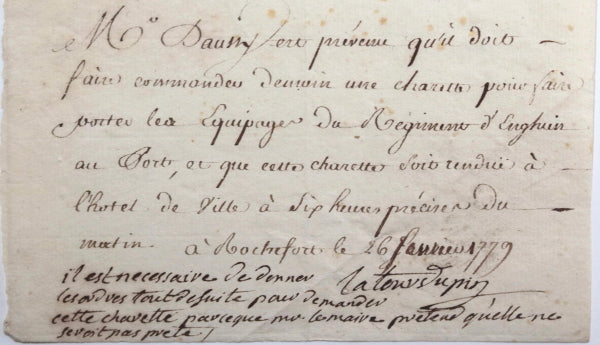 Mr. Daussy est prévenu qu'il doit
faire commander demain une charette pour faire
porter les Equipages du Régiment d'Enghuin
au Port, et que cette charette soit rendue à
l'hotel de Ville à Six heures précises du
matin. à Rochefort le 26 fevrier 1779
il est necessaire de donner Latourdupin
les ordres tout de suite pour demander
cette charette parceque mr. le maire pretend qu'elle ne
seroit pas prete /